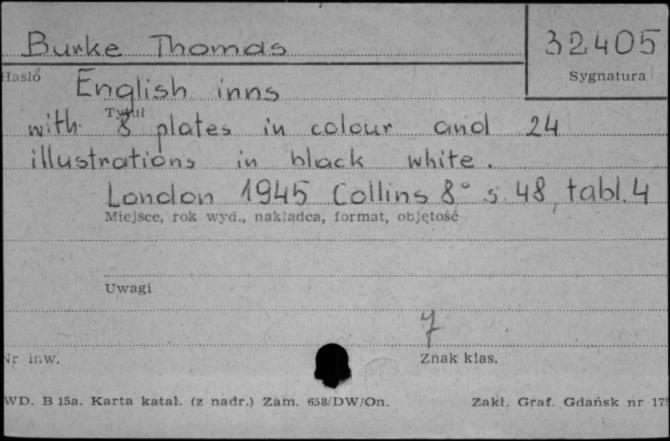 Burke Thomas 32405
Hasło Sygnatura
English inns
Tytuł
with 8 plates in colour and 24
illustrations in black white.
London 1945 Collins 8° s. 48, tabl. 4
Miejsce, rok wyd., nakładca, format, objętość
Uwagi
7
Nr inw. Znak klas.
WD. B 15a. Karta katal. (z nadr.) Zam. 658/DW/On. Zakł. Graf. Gdańsk nr 175